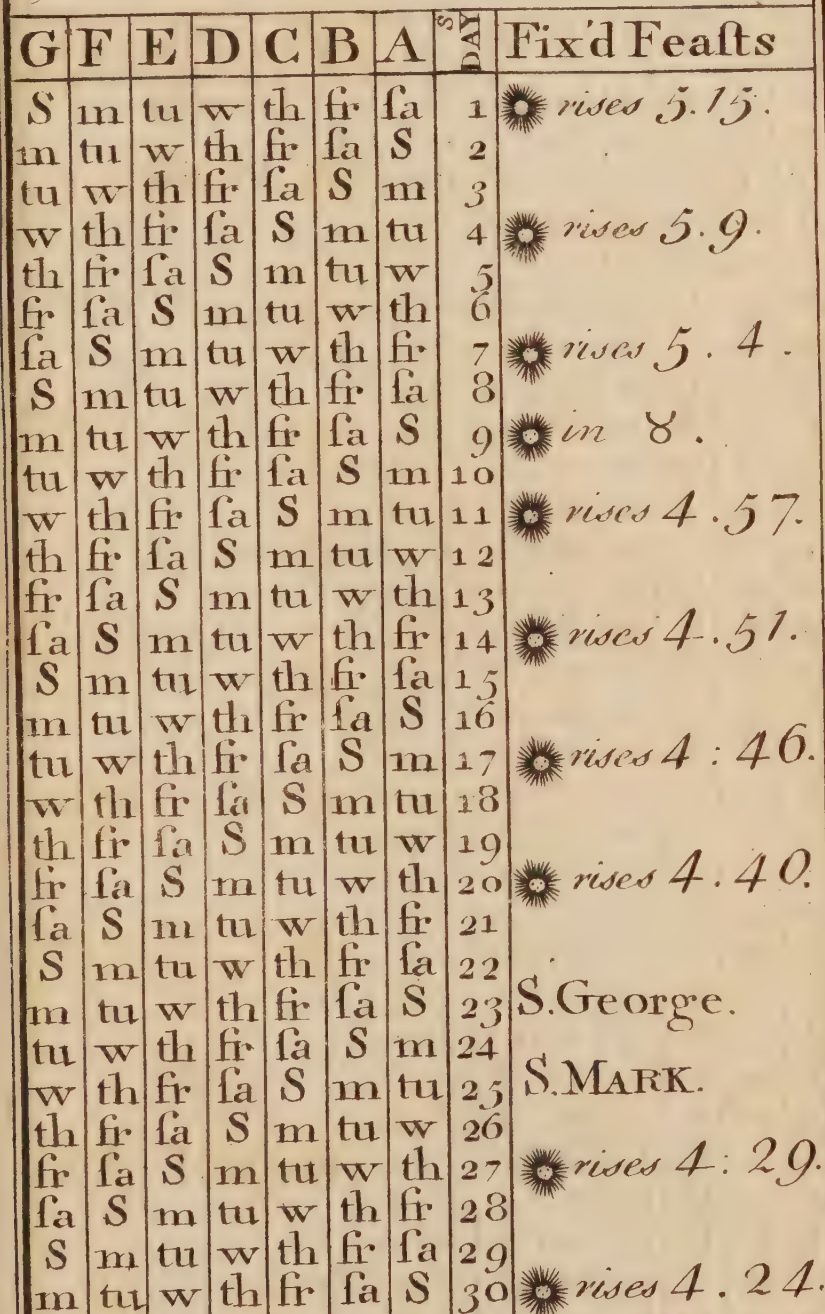 G F E D C B A DAYS Fix'd Feaſts
S m tu w th fr ſa 1 rises 5.15.
m tu w th fr ſa S 2
tu w th fr ſa S m 3
w th fr ſa S m tu 4 rises 5.9.
th fr ſa S m tu w 5
fr ſa S m tu w th 6
ſa S m tu w th fr 7 rises 5.4.
S m tu w th fr ſa 8
m tu w th fr ſa S 9 in ♉.
tu w th fr ſa S m 10
w th fr ſa S m tu 11 rises 4.57.
th fr ſa S m tu w 12
fr ſa S m tu w th 13
ſa S m tu w th fr 14 rises 4.51.
S m tu w th fr ſa 15
m tu w th fr ſa S 16
tu w th fr ſa S m 17 rises 4:46.
w th fr ſa S m tu 18
th fr ſa S m tu w 19
fr ſa S m tu w th 20 rises 4.40.
ſa S m tu w th fr 21
S m tu w th fr ſa 22
m tu w th fr ſa S 23 S.George.
tu w th fr ſa S m 24
w th fr ſa S m tu 25 S.MARK.
th fr ſa S m tu w 26
fr ſa S m tu w th 27 rises 4:29.
ſa S m tu w th fr 28
S m tu w th fr ſa 29
m tu w th fr ſa S 30 rises 4.24.